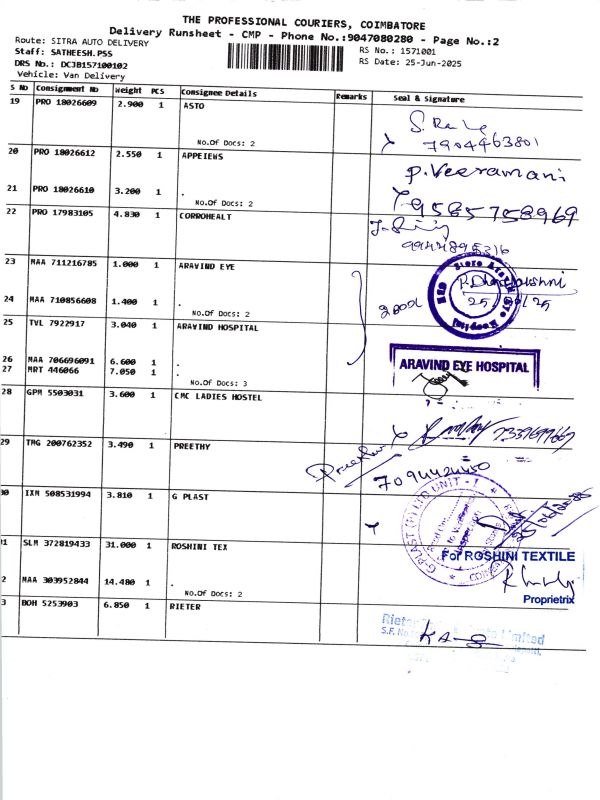 THE PROFESSIONAL COURIERS, COIMBATORE
Delivery Runsheet - CMP - Phone No.:9047080280 - Page No.:2
Route: SITRA AUTO DELIVERY
RS No.: 1571001
Staff: SATHEESH.PSS
RS Date: 25-Jun-2025
DRS No.: DCJB157100102
Vehicle: Van Delivery
S No Consignment No Weight PCS Consignee Details Remarks Seal & Signature
19 PRO 18026609 2.900 1 ASTO
No.Of Docs: 2
7904463801
20 PRO 18026612 2.550 1 APPEIEWS
P.Veeramani
21 PRO 18026610 3.200 1 .
No.Of Docs: 2
9585758969
22 PRO 17983105 4.830 1 CORROHEALT
23 MAA 711216785 1.000 1 ARAVIND EYE
24 MAA 710856608 1.400 1 .
No.Of Docs: 2
25 TVL 7922917 3.040 1 ARAVIND HOSPITAL
26 MAA 706696091 6.600 1 .
27 MRT 446066 7.050 1 .
No.Of Docs: 3
ARAVIND EYE HOSPITAL
28 GPM 5503031 3.600 1 CMC LADIES HOSTEL
29 TMG 200762352 3.490 1 PREETHY
Preethy
7094424450
30 IXM 508531994 3.810 1 G PLAST
G-PLAST (P) LTD UNIT - 1
25/06/2025
31 SLM 372819433 31.000 1 ROSHINI TEX
For ROSHINI TEXTILE
Proprietrix
2 MAA 303952844 14.480 1 .
No.Of Docs: 2
3 BOH 5253903 6.850 1 RIETER
Limited